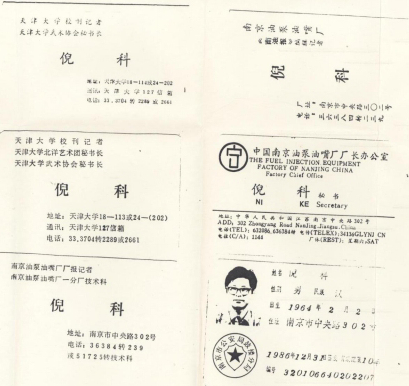 天津大学校刊记者
天津大学武术协会秘书长
倪 科
地址:天津大学18—113或24—202
通讯:天津大学127信箱
电话:33,3704转2289或2661
南京油泵油嘴厂
倪 科
天津大学校刊记者
天津大学北洋艺术团秘书长
天津大学武术协会秘书长
倪 科
地址:天津大学18—113或24—(202)
通讯:天津大学127信箱
电话:33,3704转2289或2661
中国南京油泵油嘴厂厂长办公室
THE FUEL INJECTION EQUIPMENT
FACTORY OF NANJING CHINA
Factory Chief Office
倪 科 秘书
NI KE Secretary
地址:中华人民共和国江苏南京市中央路302号
ADD: 302 Zhongyang Road Nanjing,Jiangsu,China
电话(TEL):632986,636384 电传(TELEX):34116GLYNJ CN
电挂(C/A):1544 厂休(REST):星期六;SAT
南京油泵油嘴厂厂报记者
南京油泵油嘴厂一分厂技术科
倪 科
地址:南京市中央路302号
电话:36384转239
或51723转技术科
姓名 倪 科
性别 男 民族 汉
出生 1964年2月2
住址 南京市中央路302号
南京市公安局鼓楼分局
1986年12月31
编号